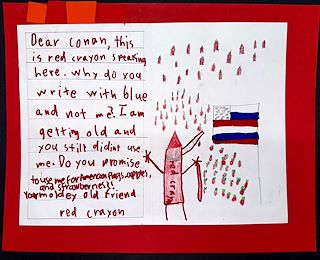 Dear Conan, this
is red crayon speaking
here. Why do you
write with blue
and not me? I am
getting old and
you still didint use
me. Do you promise
to use me for American flags, apples,
and strawberries?!
Your moldey old friend
red crayon
red crayon